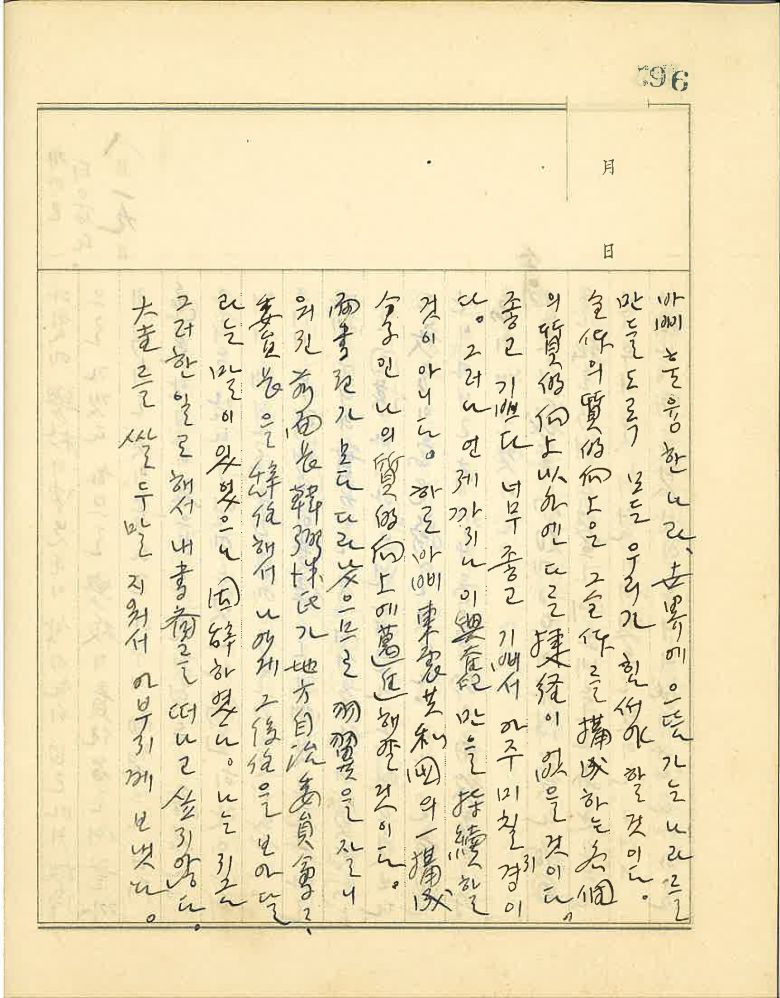 396
月
日
바삐 훈융한 나라, 世界에 으뜸가는 나라를
만들도록 모든 우리가 힘써야 할 것이다.
全体의 質的向上은 그 全体를 搆成하는 各個
의 質的向上以外엔 다른 捷径이 없을 것이다"
좋고 기쁘다 너무 좋고 기뻐서 아주 미칠 경이
다. 그러나 언제까지나 이 興奮만을 持續할
것이 아니다. 하로 아삐 東震共和国의 一搆成
分子인 나의 質的向上에 邁進해야할 것이다.
面書記가 모다 다라났으므로 羽翼을 잘니
워진 前面長 韓弼洙氏가 地方自治委員會
委員長을 辞任해서 나에게 그 後任을 보아달
라는 말이 있었으나 固辞하였다. 나는 지금
그러한 일로 해서 내 書齋를 떠나고 싶지 않다.
大圭를 쌀 두말 지워서 아부지께 보냇다.